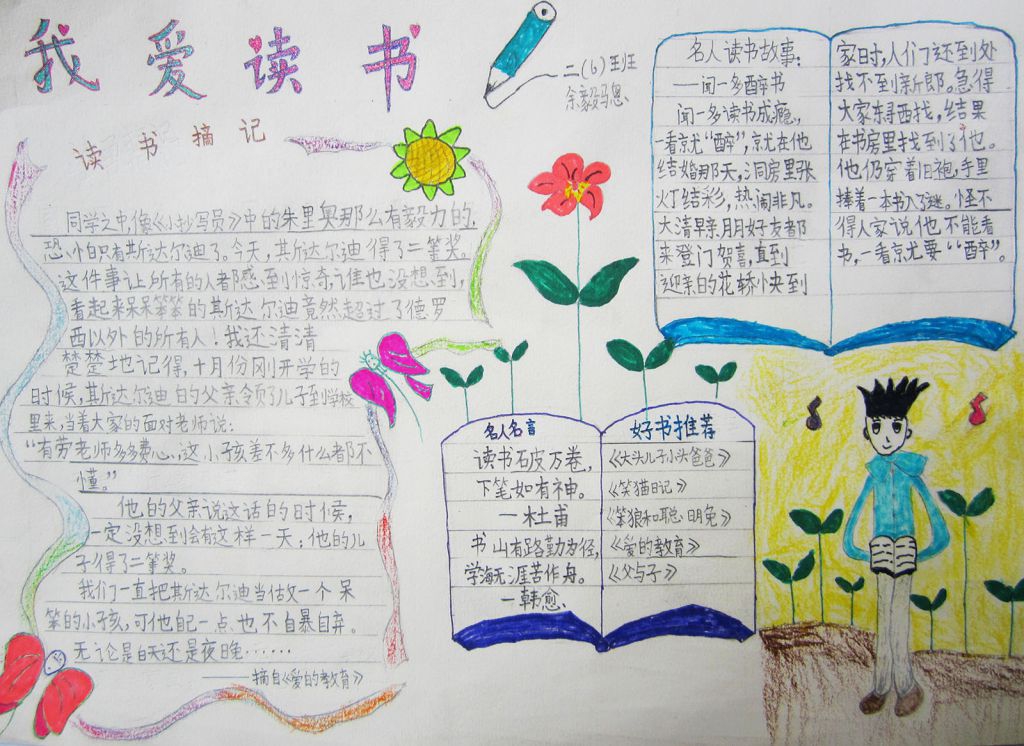 我爱读书
二(6)班
余毅骉恩
读书摘记
同学之中,像《小抄写员》中的朱里奥那么有毅力的,
恐怕只有斯达尔迪了。今天,其斯达尔迪得了二等奖。
这件事让所有的人都感到惊奇,谁也没想到,
看起来呆呆笨笨的斯达尔迪竟然超过了德罗
西以外的所有人!我还清清
楚楚地记得,十月份刚开学的
时候,其斯达尔迪的父亲领了儿子到学校
里来,当着大家的面对老师说:
“有劳老师多多费心,这小孩差不多什么都不
懂。”
他的父亲说这话的时候,
一定没想到会有这样一天;他的儿
子得了二等奖。
我们一直把斯达尔迪当做一个呆
笨的小孩,可他自己一点也不自暴自弃。
无论是白天还是夜晚……
——摘自《爱的教育》
名人读书故事:
——闻一多醉书
闻一多读书成瘾,
一看就“醉”,就在他
结婚那天,洞房里张
灯结彩,热闹非凡。
大清早亲朋好友都
来登门贺喜,直到
迎亲的花轿快到
家时,人们还到处
找不到新郎。急得
大家东寻西找,结果
在书房里找到了他。
他仍穿着旧袍,手里
捧着一本书入了迷。怪不
得人家说他不能看
书,一看就要“醉”。
名人名言
读书破万卷,
下笔如有神。
—杜甫
书山有路勤为径,
学海无涯苦作舟。
—韩愈
好书推荐
《大头儿子小头爸爸》
《笑猫日记》
《笨狼和聪明兔》
《爱的教育》
《父与子》